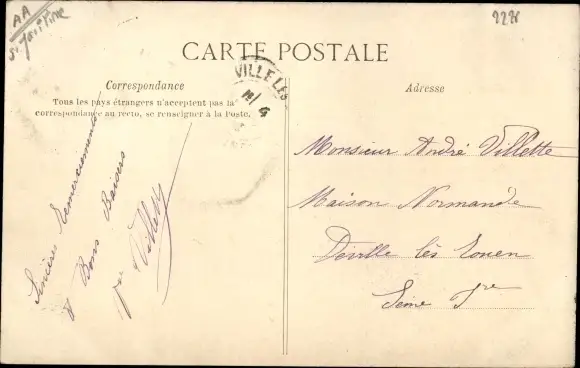 AA
CARTE POSTALE
Correspondance
Tous les pays étrangers n'acceptent pas la
correspondance au recto, se renseigner à la Poste.
VILLE LÈS
Adresse
Sincères Remerciements
& Bons Baisers
Villette
Monsieur André Villette
Maison Normande
Déville lès Rouen
Seine Inre